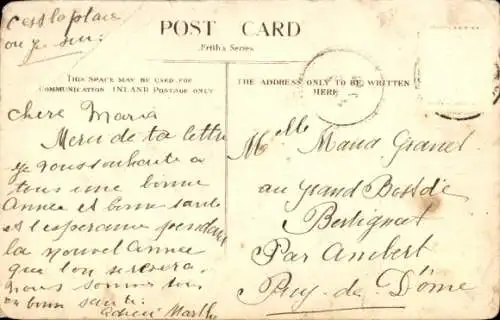 c'est la place
ou je suis
POST CARD
Frith's Series
THIS SPACE MAY BE USED FOR
COMMUNICATION INLAND POSTAGE ONLY
THE ADDRESS ONLY TO BE WRITTEN
HERE
chere Maria
Merci de ta lettre
je vous souhaite a
tous une bonne
Annee et bonne sante
et l'esperance pendant
la nouvel Annee
que l'on se
nous sommes tous
en bonne sante
adieu Marthe
Melle Maria
au grand Bost de
Bertignat
Par Ambert
Puy-de-Dôme